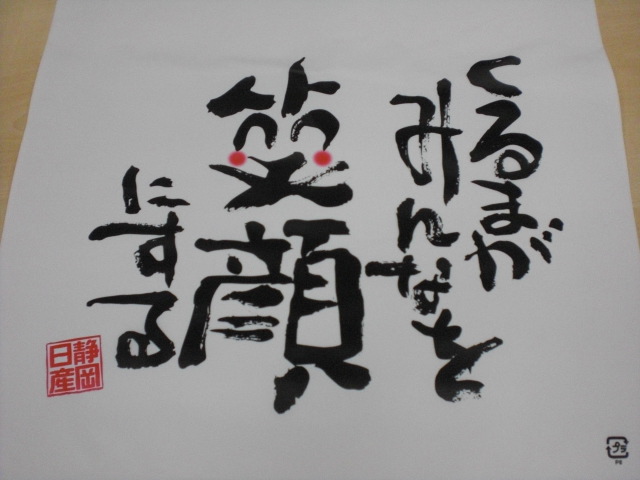 くるまが
みんなを
笑顔
にする
静岡
日産
プラ
PE